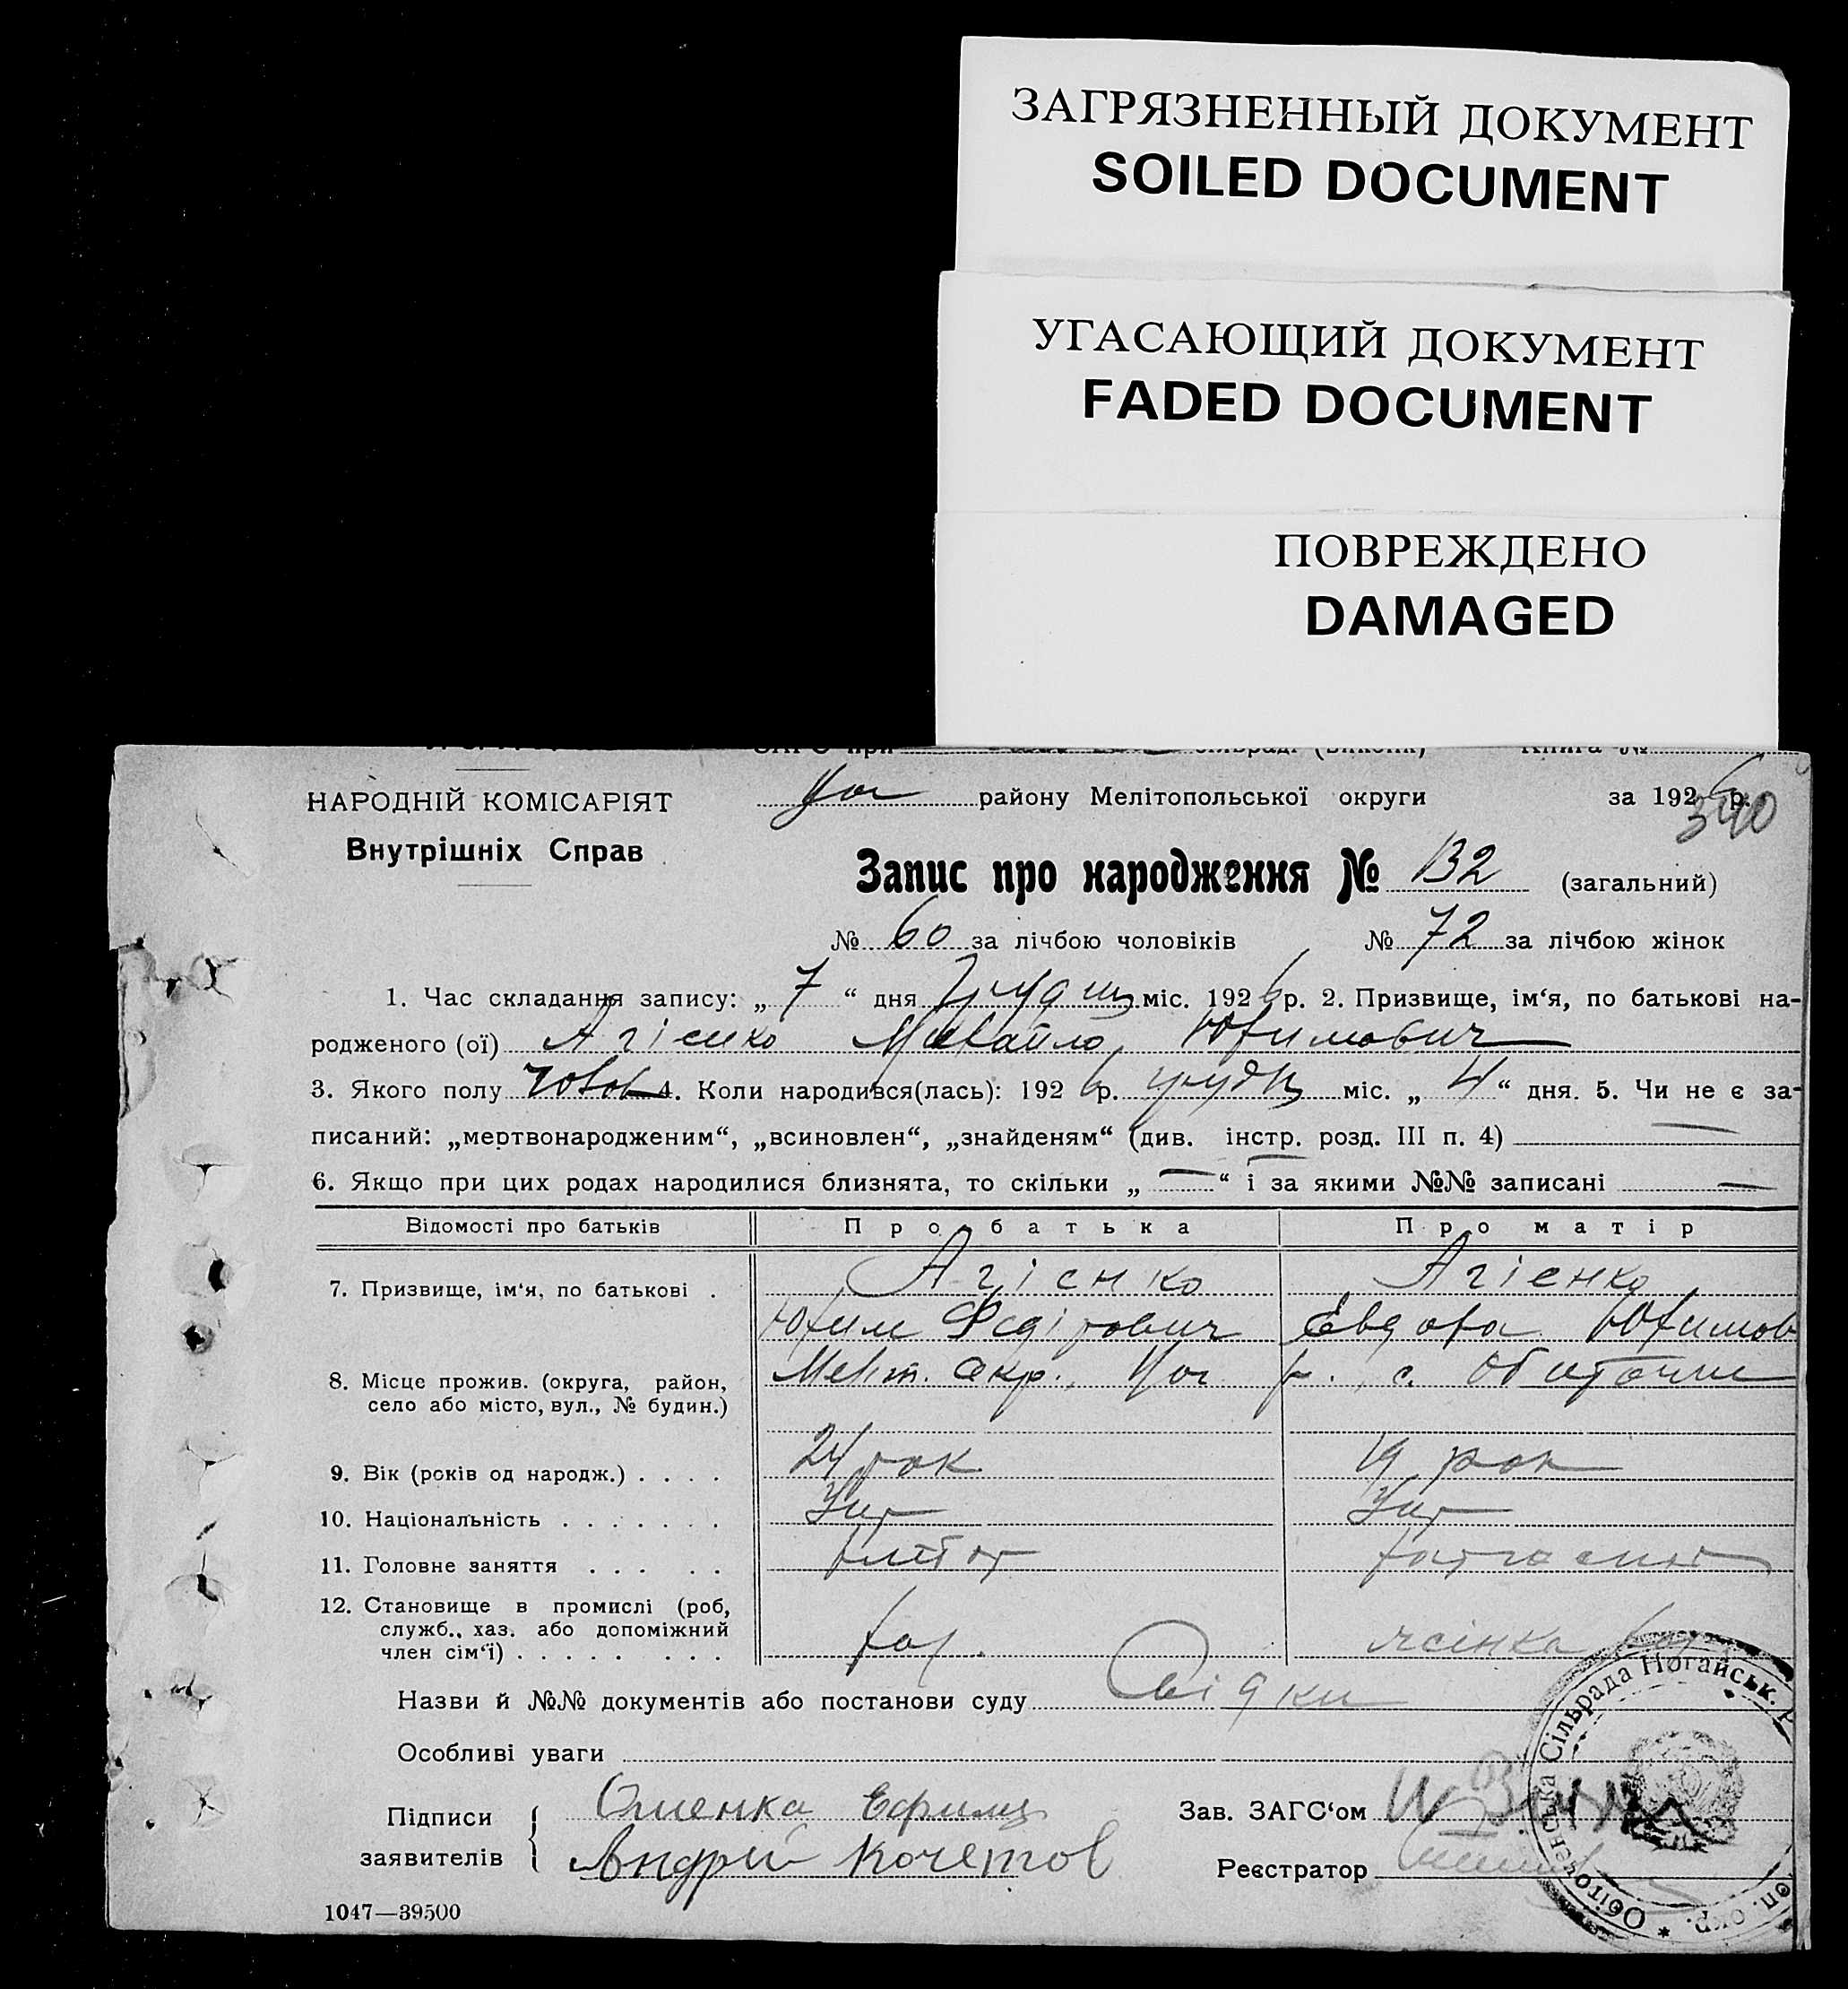 ЗАГРЯЗНЕННЫЙ ДОКУМЕНТ
SOILED DOCUMENT
УГАСАЮЩИЙ ДОКУМЕНТ
FADED DOCUMENT
ПОВРЕЖДЕНО
DAMAGED
НАРОДНІЙ КОМІСАРІЯТ
Внутрішніх Справ
Ног району Мелітопольської округи за 1926 р.
340
Запис про народження № 132 (загальний)
№ 60 за лічбою чоловіків № 72 за лічбою жінок
1. Час складання запису: „ 7 “ дня Грудня міс. 1926 р. 2. Призвище, ім‘я, по батькові на-
родженого (ої) Агієнко Михайло Юхимович
3. Якого полу чолов 4. Коли народився(лась): 1926 р. грудня міс. „ 4 “ дня. 5. Чи не є за-
писаний: „мертвонародженим“, „всиновлен“, „знайденям“ (див. інстр. розд. III п. 4) —
6. Якщо при цих родах народилися близнята, то скільки „ — “ і за якими №№ записані —
Відомості про батьків Про батька Про матір
7. Призвище, ім‘я, по батькові . Агієнко Агієнко
Юхим Федірович Евдоха Юхимов
8. Місце прожив. (округа, район, Меліт. окр., Ног р. с. Обиточне
село або місто, вул., № будин.)
9. Вік (років од народж.) . . . . 24 рок 19 рок
10. Національність . . . . . . . Укр Укр
11. Головне заняття . . . . . хлібор
12. Становище в промислі (роб,
служб., хаз. або допоміжний
член сім‘ї) . . . . . . . . хаз. жінка хаз
Назви й №№ документів або постанови суду Свідки
Особливі уваги
Підписи
заявителів
Андрій Кочетов
Зав. ЗАГС‘ом
Реєстратор
Обіточенська Сільрада Ногайськ. Р
оп. окр. *
1047—39500